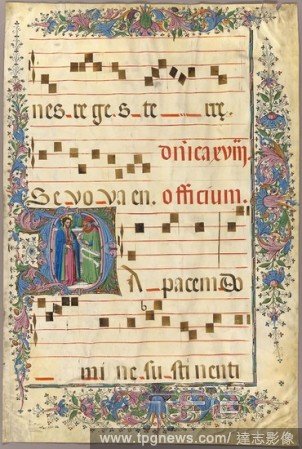 nes. re ge. s. te rrę.
dñica xviij.
Se vo va en. officium.
DA pacem do
mi ne. su sti nenti
www.tpgnews.com/ 達志影像